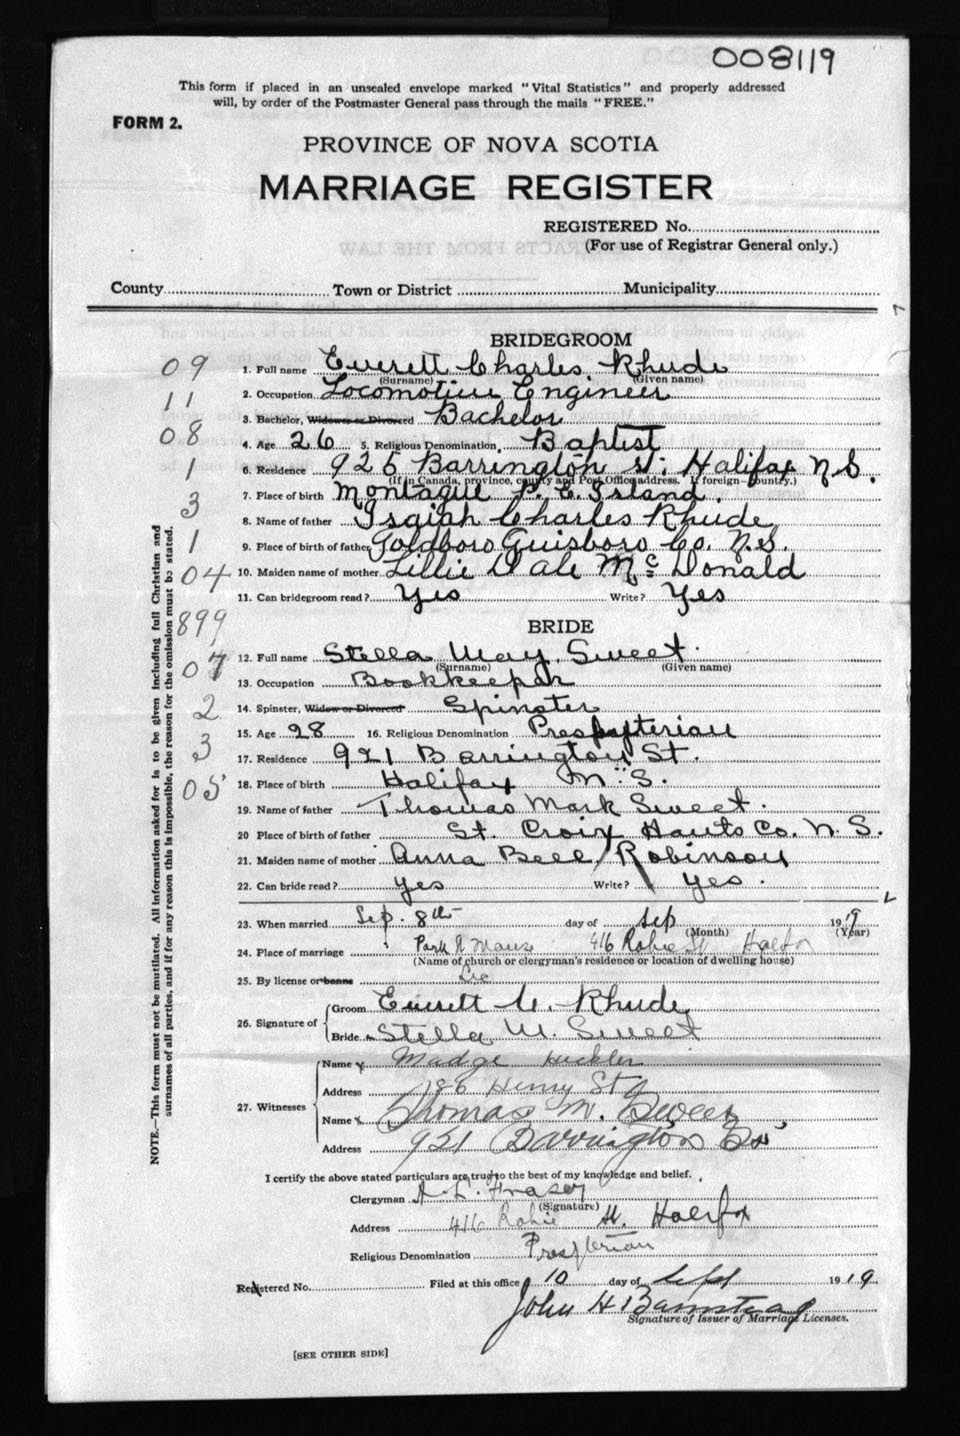 008119
This form if placed in an unsealed envelope marked "Vital Statistics" and properly addressed
will, by order of the Postmaster General pass through the mails "FREE."
FORM 2.
PROVINCE OF NOVA SCOTIA
MARRIAGE REGISTER
REGISTERED No.
(For use of Registrar General only.)
County Town or District Municipality
BRIDEGROOM
09
1. Full name Everett Charles Rhude
(Surname) (Given name)
11
2. Occupation Locomotive Engineer
3. Bachelor, Widower or Divorced Bachelor
08
4. Age 26 5. Religious Denomination, Baptist
1
6. Residence 925 Barrington St. Halifax N.S.
(If in Canada, province, county and Post Office address. If foreign—country.)
3
7. Place of birth Montague P. E. Island.
8. Name of father Isaiah Charles Rhude
1
9. Place of birth of father Goldboro Guisboro Co. N.S.
04
10. Maiden name of mother Lillie Dale Mc Donald
11. Can bridegroom read? Yes Write? Yes
899
BRIDE
07
12. Full name Stella May Sweet.
(Surname) (Given name)
13. Occupation Bookkeeper
2
14. Spinster, Widow or Divorced Spinster
15. Age 28 16. Religious Denomination Presbyterian
3
17. Residence 921 Barrington St.
05
18. Place of birth Halifax N.S.
19. Name of father Thomas Mark Sweet.
20 Place of birth of father St. Croix Hants Co. N.S.
21. Maiden name of mother Anna Bell Robinson
22. Can bride read? yes Write? yes.
23. When married Sep. 8th day of Sep 1919
(Month) (Year)
24. Place of marriage Park St Manse 416 Robie St Halifax
(Name of church or clergyman's residence or location of dwelling house)
25. By license or banns Lic
26. Signature of
Groom Everett C. Rhude
Bride Stella M. Sweet
27. Witnesses
Name Madge Huckler
Address 186 Henry St
Name Thomas M. Sweet
Address 921 Barrington St
NOTE.—This form must not be mutilated. All information asked for is to be given including full Christian and
surnames of all parties, and if for any reason this is impossible, the reason for the omission must be stated.
I certify the above stated particulars are true to the best of my knowledge and belief.
Clergyman Fraser
(Signature)
Address 416 Robie St. Halifax
Religious Denomination Presbterian
Registered No. Filed at this office 10 day of Sept 1919.
John H Barnstead
Signature of Issuer of Marriage Licenses.
[SEE OTHER SIDE]